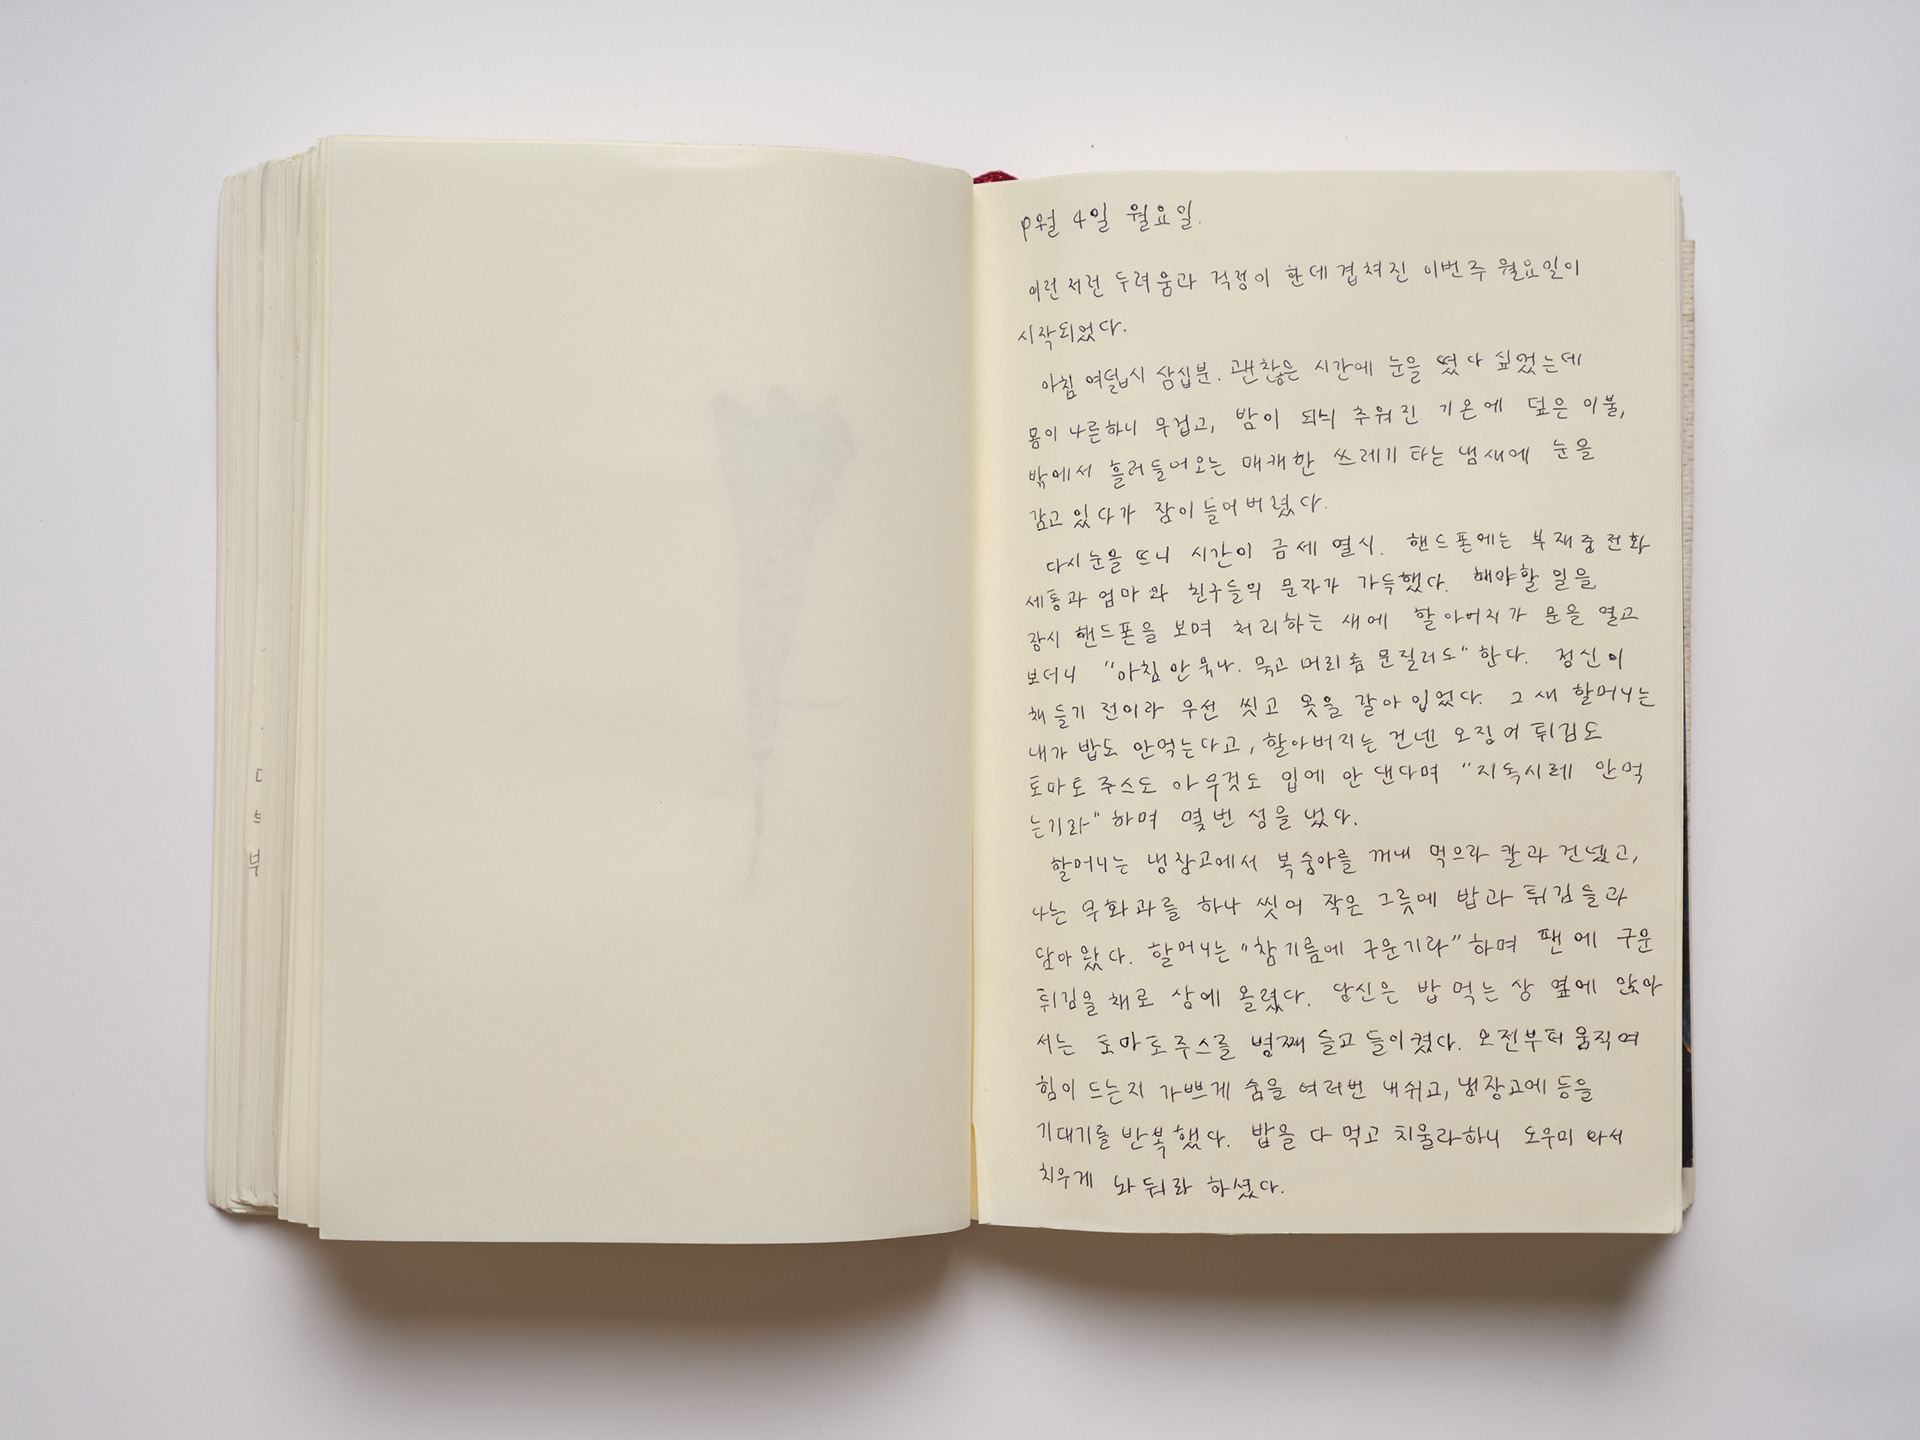 9월 4일 월요일.
이런 저런 두려움과 걱정이 한데 겹쳐진 이번주 월요일이
시작되었다.
아침 여덟시 삼십분. 괜찮은 시간에 눈을 떴다 싶었는데
몸이 나른하니 무겁고, 밤이 되니 추워진 기온에 덮은 이불,
밖에서 흘러들어오는 매캐한 쓰레기 타는 냄새에 눈을
감고 있다가 잠이 들어버렸다.
다시 눈을 뜨니 시간이 금세 열시. 핸드폰에는 부재중전화
세통과 엄마와 친구들의 문자가 가득했다. 해야할 일을
잠시 핸드폰을 보며 처리하는 새에 할아버지가 문을 열고
보더니 "아침 안 묵나. 묵고 머리 좀 문질러도" 한다. 정신이
채 들기 전이라 우선 씻고 옷을 갈아 입었다. 그 새 할머니는
내가 밥도 안먹는다고, 할아버지는 건넨 오징어 튀김도
토마토 주스도 아무것도 입에 안 댄다며 "지독시레 안먹
는기라" 하며 몇번 성을 냈다.
할머니는 냉장고에서 복숭아를 꺼내 먹으라 칼과 건넸고,
나는 무화과를 하나 씻어 작은 그릇에 밥과 튀김들과
담아 왔다. 할머니는 "참기름에 구운기라" 하며 팬에 구운
튀김을 채로 상에 올렸다. 당신은 밥 먹는 상 옆에 앉아
서는 토마토주스를 병째 들고 들이켰다. 오전부터 움직여
힘이 드는지 가쁘게 숨을 여러번 내쉬고, 냉장고에 등을
기대기를 반복했다. 밥을 다 먹고 치울라하니 도우미 와서
치우게 놔 둬라 하셨다.